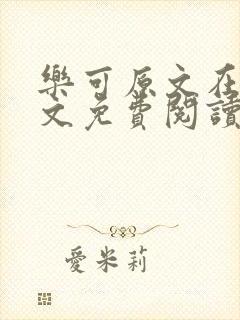 樂可原文在
文免費閱讀
愛米莉